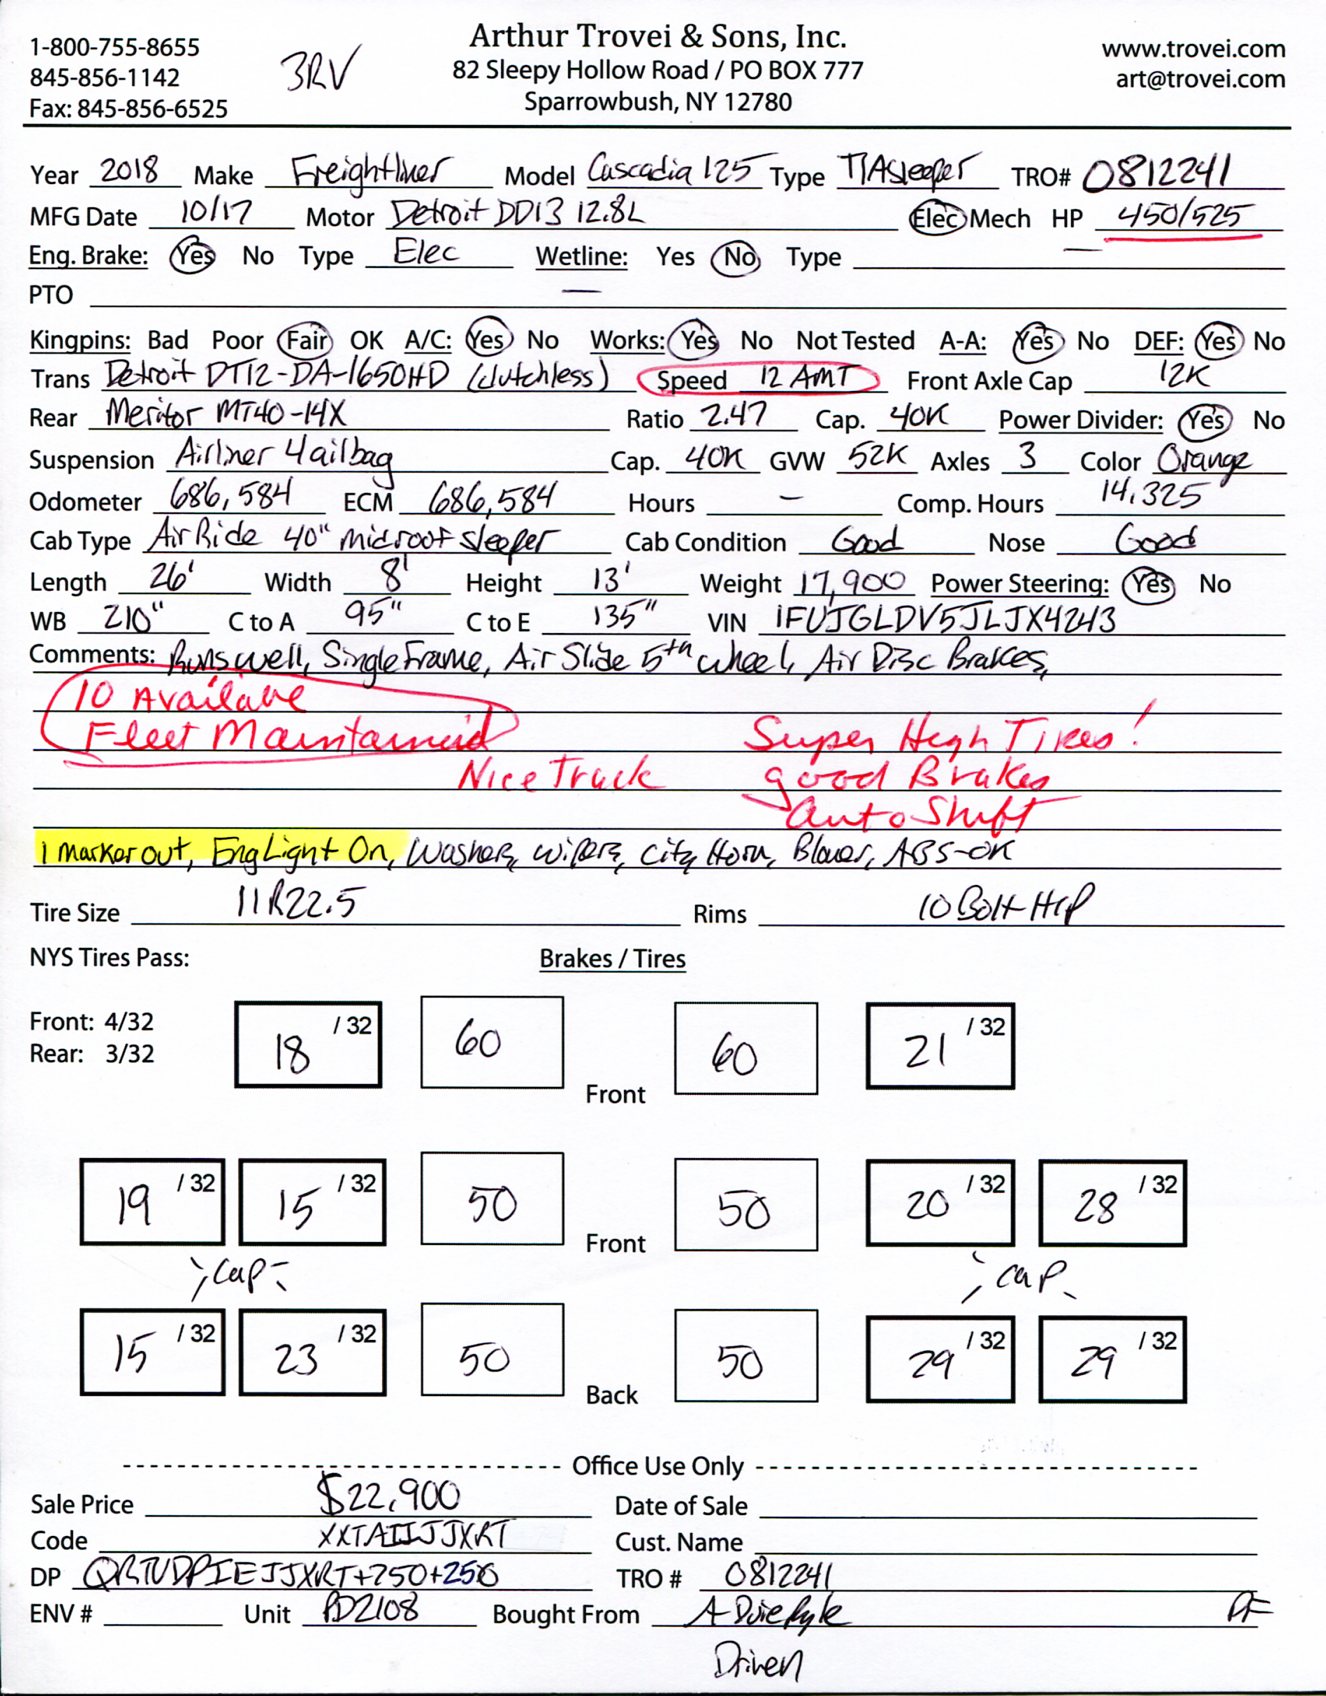 1-800-755-8655
845-856-1142
Fax: 845-856-6525
3RV
Arthur Trovei & Sons, Inc.
82 Sleepy Hollow Road / PO BOX 777
Sparrowbush, NY 12780
www.trovei.com
art@trovei.com
Year 2018 Make Freightliner Model Cascadia 125 Type T/A Sleeper TRO# 0812241
MFG Date 10/17 Motor Detroit DD13 12.8L Elec Mech HP 450/525
Eng. Brake: Yes No Type Elec Wetline: Yes No Type —
PTO —
Kingpins: Bad Poor Fair OK A/C: Yes No Works: Yes No Not Tested A-A: Yes No DEF: Yes No
Trans Detroit DT12-DA-1650HD (Clutchless) Speed 12 AMT Front Axle Cap 12K
Rear Meritor MT40-14X Ratio 2.47 Cap. 40K Power Divider: Yes No
Suspension Airliner 4 airbag Cap. 40K GVW 52K Axles 3 Color Orange
Odometer 686,584 ECM 686,584 Hours — Comp. Hours 14,325
Cab Type Air Ride 40" midroof sleeper Cab Condition Good Nose Good
Length 26' Width 8' Height 13' Weight 17,900 Power Steering: Yes No
WB 210" C to A 95" C to E 135" VIN 1FUJGLDV5JLJX4243
Comments: Runs well, Single Frame, Air Slide 5th wheel, Air Disc Brakes,
10 Available
Fleet Maintained Super High Tires!
Nice Truck good Brakes
Auto Shift
1 marker out, Eng Light On, Washers, wipers, city Horn, Blower, ABS-OK
Tire Size 11R22.5 Rims 10 Bolt HP
NYS Tires Pass: Brakes / Tires
Front: 4/32
Rear: 3/32
18 /32 60 Front 60 21 /32
19 /32 15 /32 50 Front 50 20 /32 28 /32
Cap Cap
15 /32 23 /32 50 Back 50 29 /32 29 /32
Office Use Only
Sale Price $22,900 Date of Sale
Code XXTAIIJJXRT Cust. Name
DP QRTUDPIEJJXRT+250+250 TRO # 0812241
ENV # Unit PD2108 Bought From A-Duie Pyle
Driven